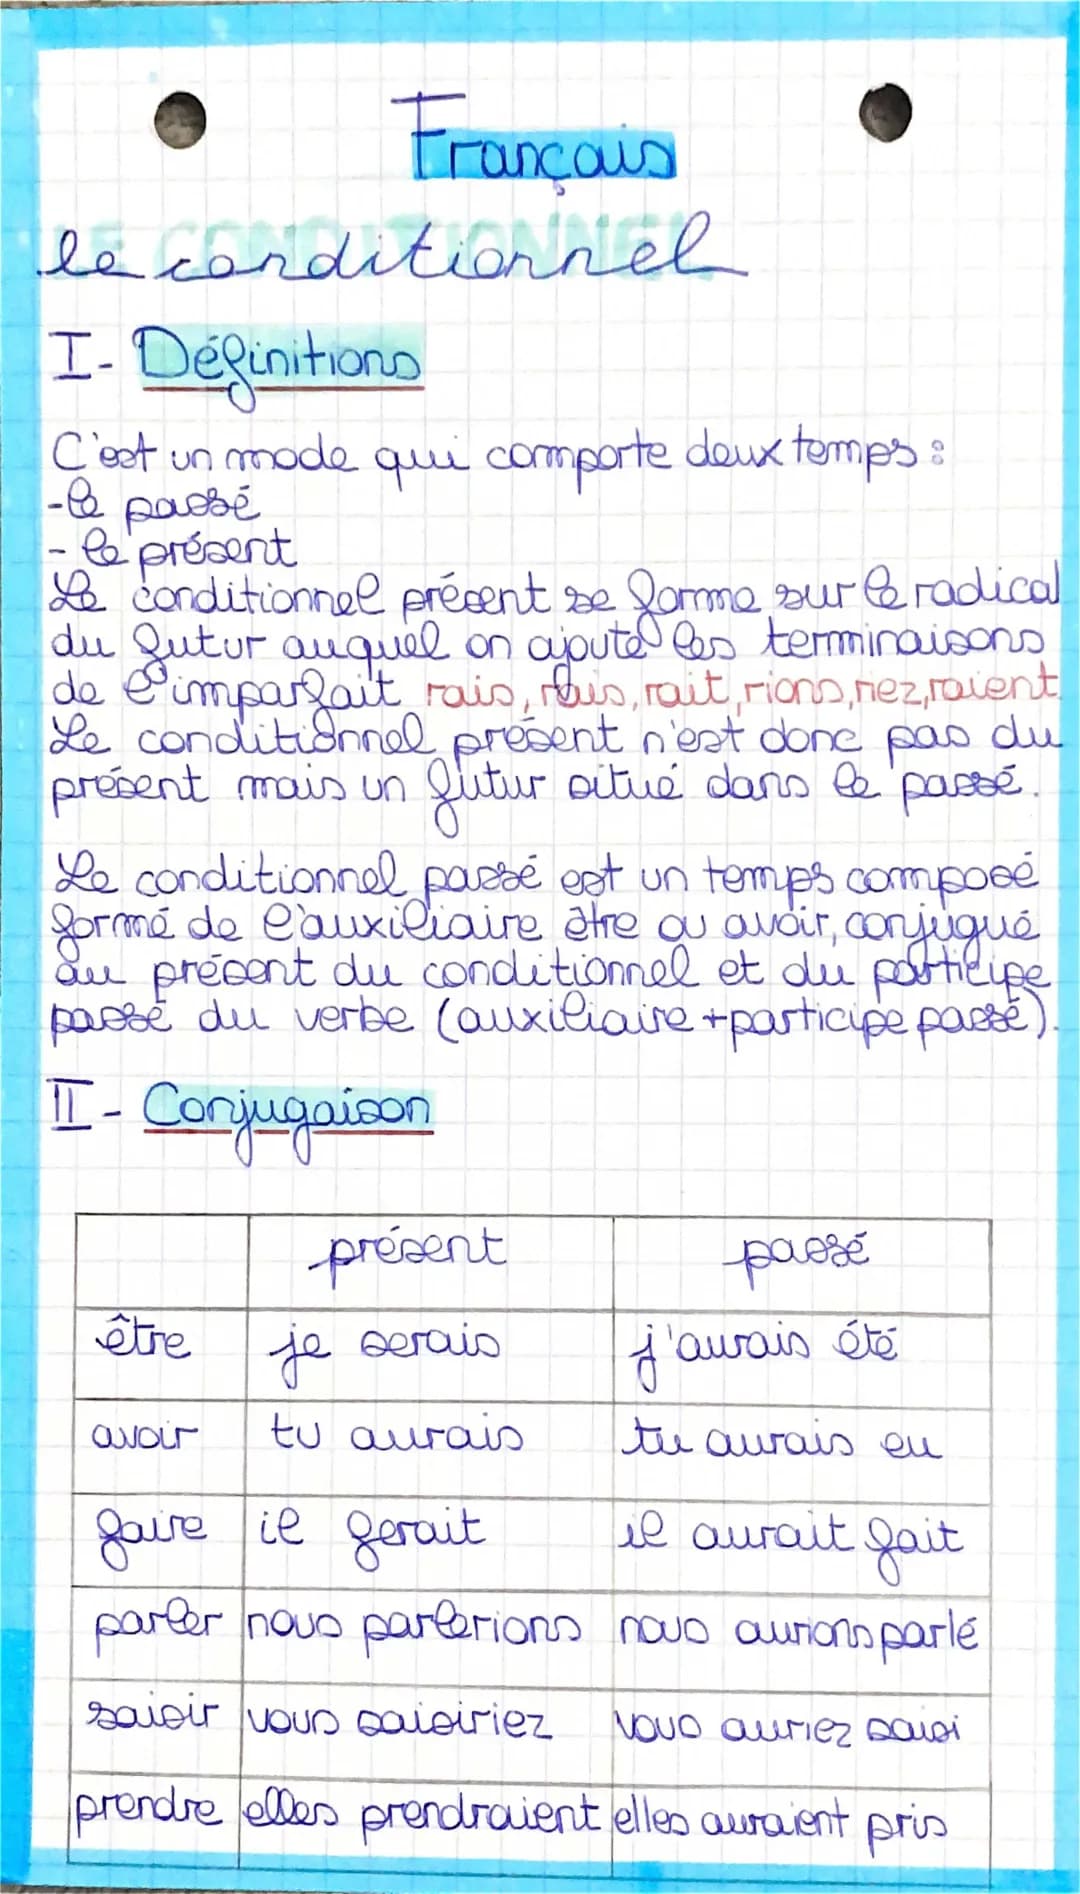 Français
le conditionnel
I- Définitions
C'est un mode qui comporte deux temps :
-le passé
- le présent
Le conditionnel présent se forme sur le radical
du futur auquel on ajoute les terminaisons
de l'imparfait rais, rais, rait, rions, riez, raient.
Le conditionnel présent n'est donc pas du
présent mais un futur situé dans le passé.
Le conditionnel passé est un temps composé
formé de l'auxiliaire être ou avoir, conjugué
au présent du conditionnel et du participe
passé du verbe (auxiliaire + participe passé).
II - Conjugaison
présent passé
être je serais j'aurais été
avoir tu aurais tu aurais eu
faire il ferait il aurait fait
parler nous parlerions nous aurions parlé
saisir vous saisiriez vous auriez saisi
prendre elles prendraient elles auraient pris